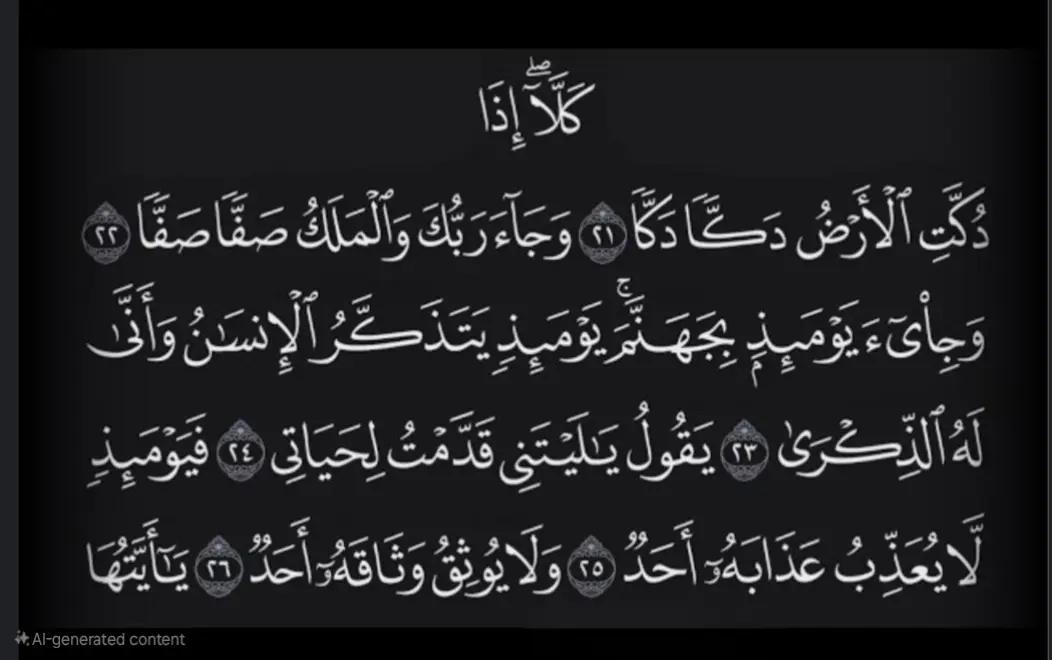 كَلَّآۖ إِذَا
دُكَّتِ ٱلْأَرْضُ دَكًّا دَكًّا ٢١ وَجَآءَ رَبُّكَ وَٱلْمَلَكُ صَفًّا صَفًّا ٢٢
وَجِا۟ىٓءَ يَوْمَئِذٍۭ بِجَهَنَّمَۚ يَوْمَئِذٍ يَتَذَكَّرُ ٱلْإِنسَٰنُ وَأَنَّىٰ
لَهُ ٱلذِّكْرَىٰ ٢٣ يَقُولُ يَٰلَيْتَنِى قَدَّمْتُ لِحَيَاتِى ٢٤ فَيَوْمَئِذٍ
لَّا يُعَذِّبُ عَذَابَهُۥٓ أَحَدٌ ٢٥ وَلَا يُوثِقُ وَثَاقَهُۥٓ أَحَدٌ ٢٦ يَٰٓأَيَّتُهَا
AI-generated content